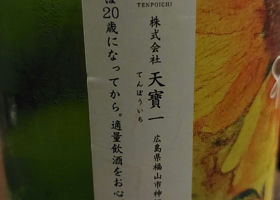 TENPOICHI
株式会社 天寶一
てんぽういち
広島県福山市神
は20歳になってから。適量飲酒をお心